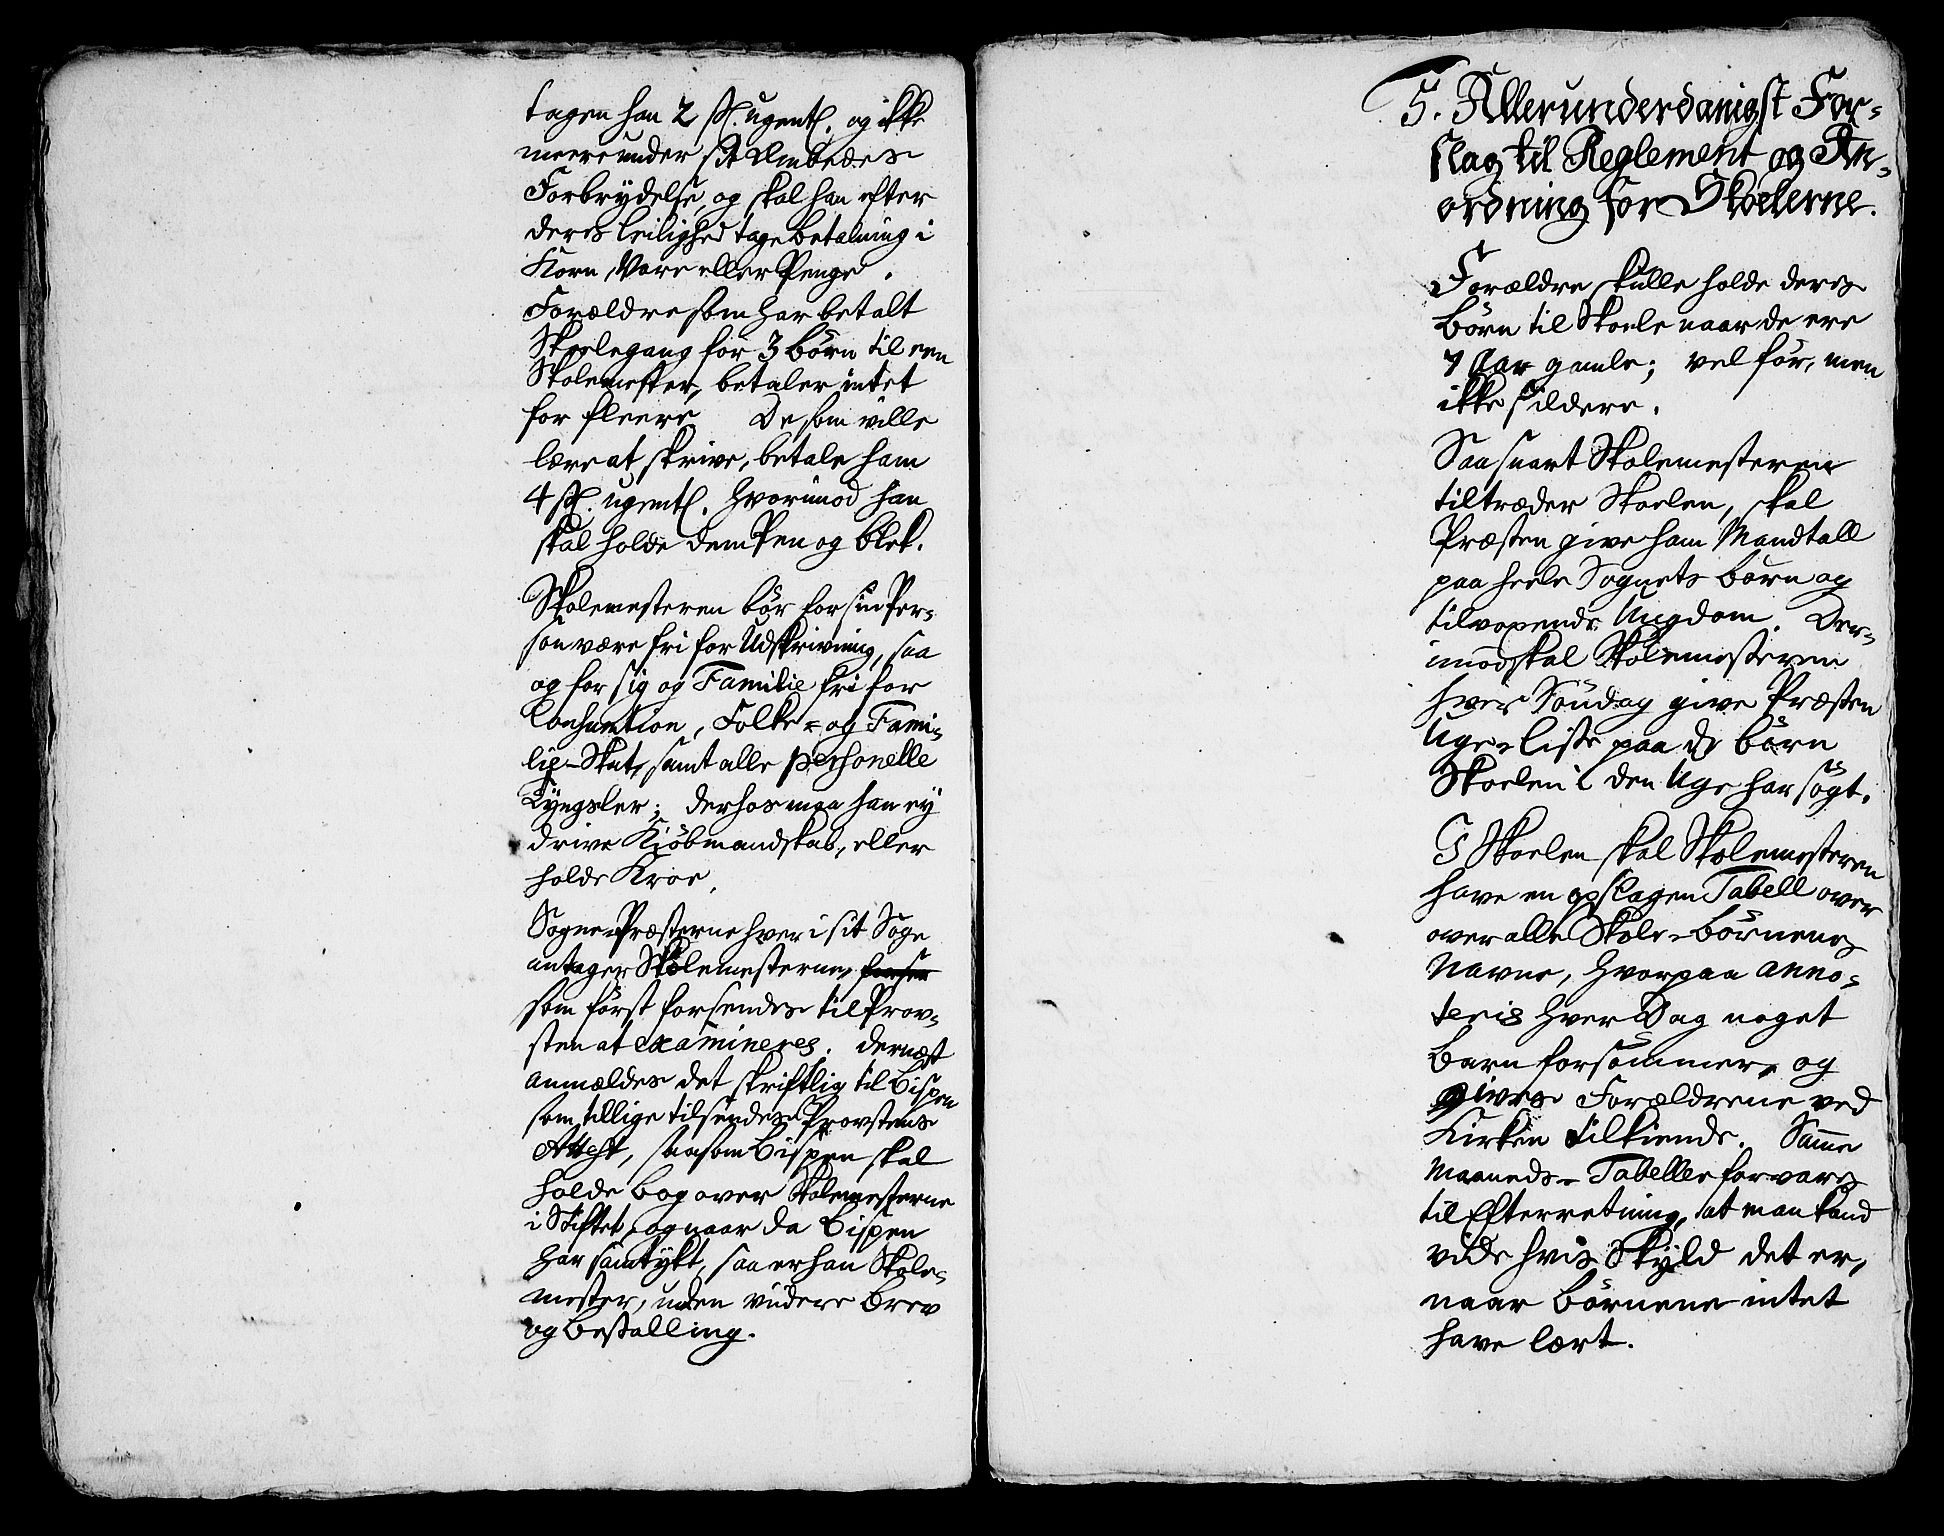 tagen han 2 sk. ugentl. og ikke
meere under sit Embedes
Forbrydelse, og skal han efter
deres leilighed tage betalning i
Korn, Vare eller Penge.
Forældre som har betalt
Skoelegang for 3 børn til een
Skolemester, betaler intet
for fleere De som ville
lære at skrive, betale ham
4 sk. ugentl. hvorimod han
skal holde dem Pen og blek.
Skolemesteren bør for sin Per-
son være fri for Udskrivning, saa
og for sig og Familie fri for
Consumtion, Folke- og Fami-
lie-Skat, samt alle personelle
Tyngsler; derhos maa han ey
drive Kiöbmandskab, eller
holde Kroe,
Sogne-Præsterne hver i sit Sogn
antager Skolemesterne,
som først forsendes til Prov-
sten at examineres. dernæst
anmældes det skriftlig til Bispen
som tillige tilsendes Provstens
Attest, saasom Bispen skal
holde bog over Skolemesterne
i Stiftet, og naar da Bispen
har samtykt, saa er han Skole-
mester, uden videre brev
og bestalling.
5. Allerunderdanigst For-
slag til Reglement og An-
ordning for Skoelerne.
Forældre skulle holde deres
børn til Skoele naar de ere
7 Aar gamle; vel før, men
ikke sildere.
Saa snart Skolemesteren
tiltræder Skoelen, skal
Præsten give ham Mandtall
paa heele Sognets børn og
tilvoxende Ungdom. Der-
imod skal Skolemesteren
hver Søndag give Præsten
Uge-liste paa de børn
Skoelen i den Uge har søgt.
I Skoelen skal Skolemesteren
have en opslagen Tabell over
over alle Skole-børnenes
Navne, hvorpaa anno-
teris hver Dag noget
barn forsømmer, og
gives Forældrene ved
Kirken tilkiende. Samme
Maaneds-Tabeller forvares
til Efterretning, at man kand
vide hvis Skyld det er,
naar børnene intet
have lært.